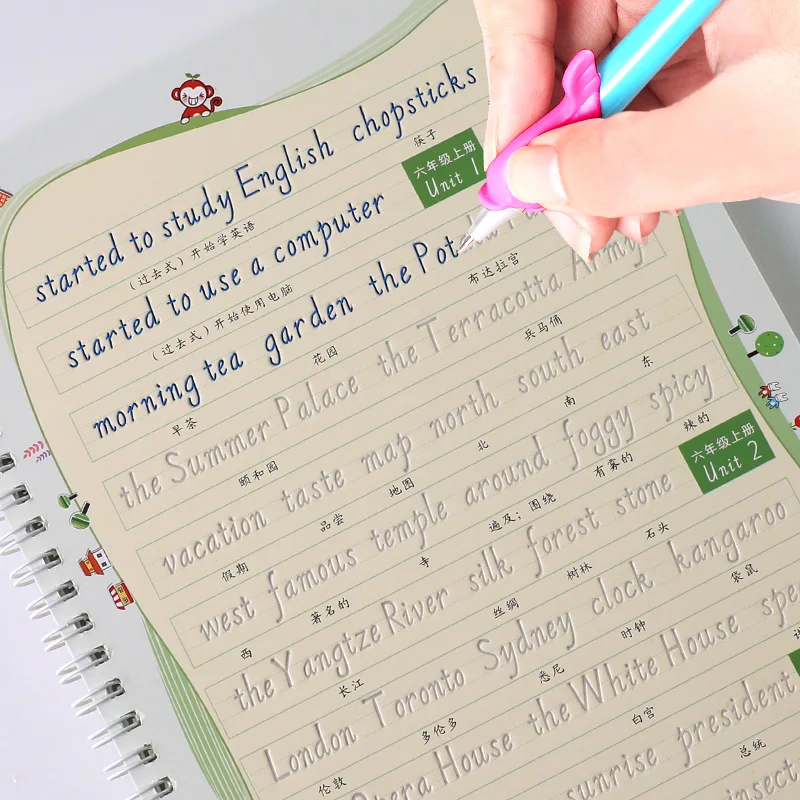 started to study English chopsticks
(过去式) 开始学英语 筷子
六年级上册
Unit 1
started to use a computer
(过去式) 开始使用电脑
morning tea garden the Pot
早茶 花园 布达拉宫
the Summer Palace the Terracotta Army
颐和园 兵马俑
vacation taste map north south east
假期 品尝 地图 北 南 东
west famous temple around foggy spicy
西 著名的 寺 遍及；围绕 有雾的 辣的
六年级上册
Unit 2
the Yangtze River silk forest stone
长江 丝绸 树林 石头
London Toronto Sydney clock kangaroo
伦敦 多伦多 悉尼 时钟 袋鼠
Opera House the White House spe
白宫
sunrise president
总统
insect